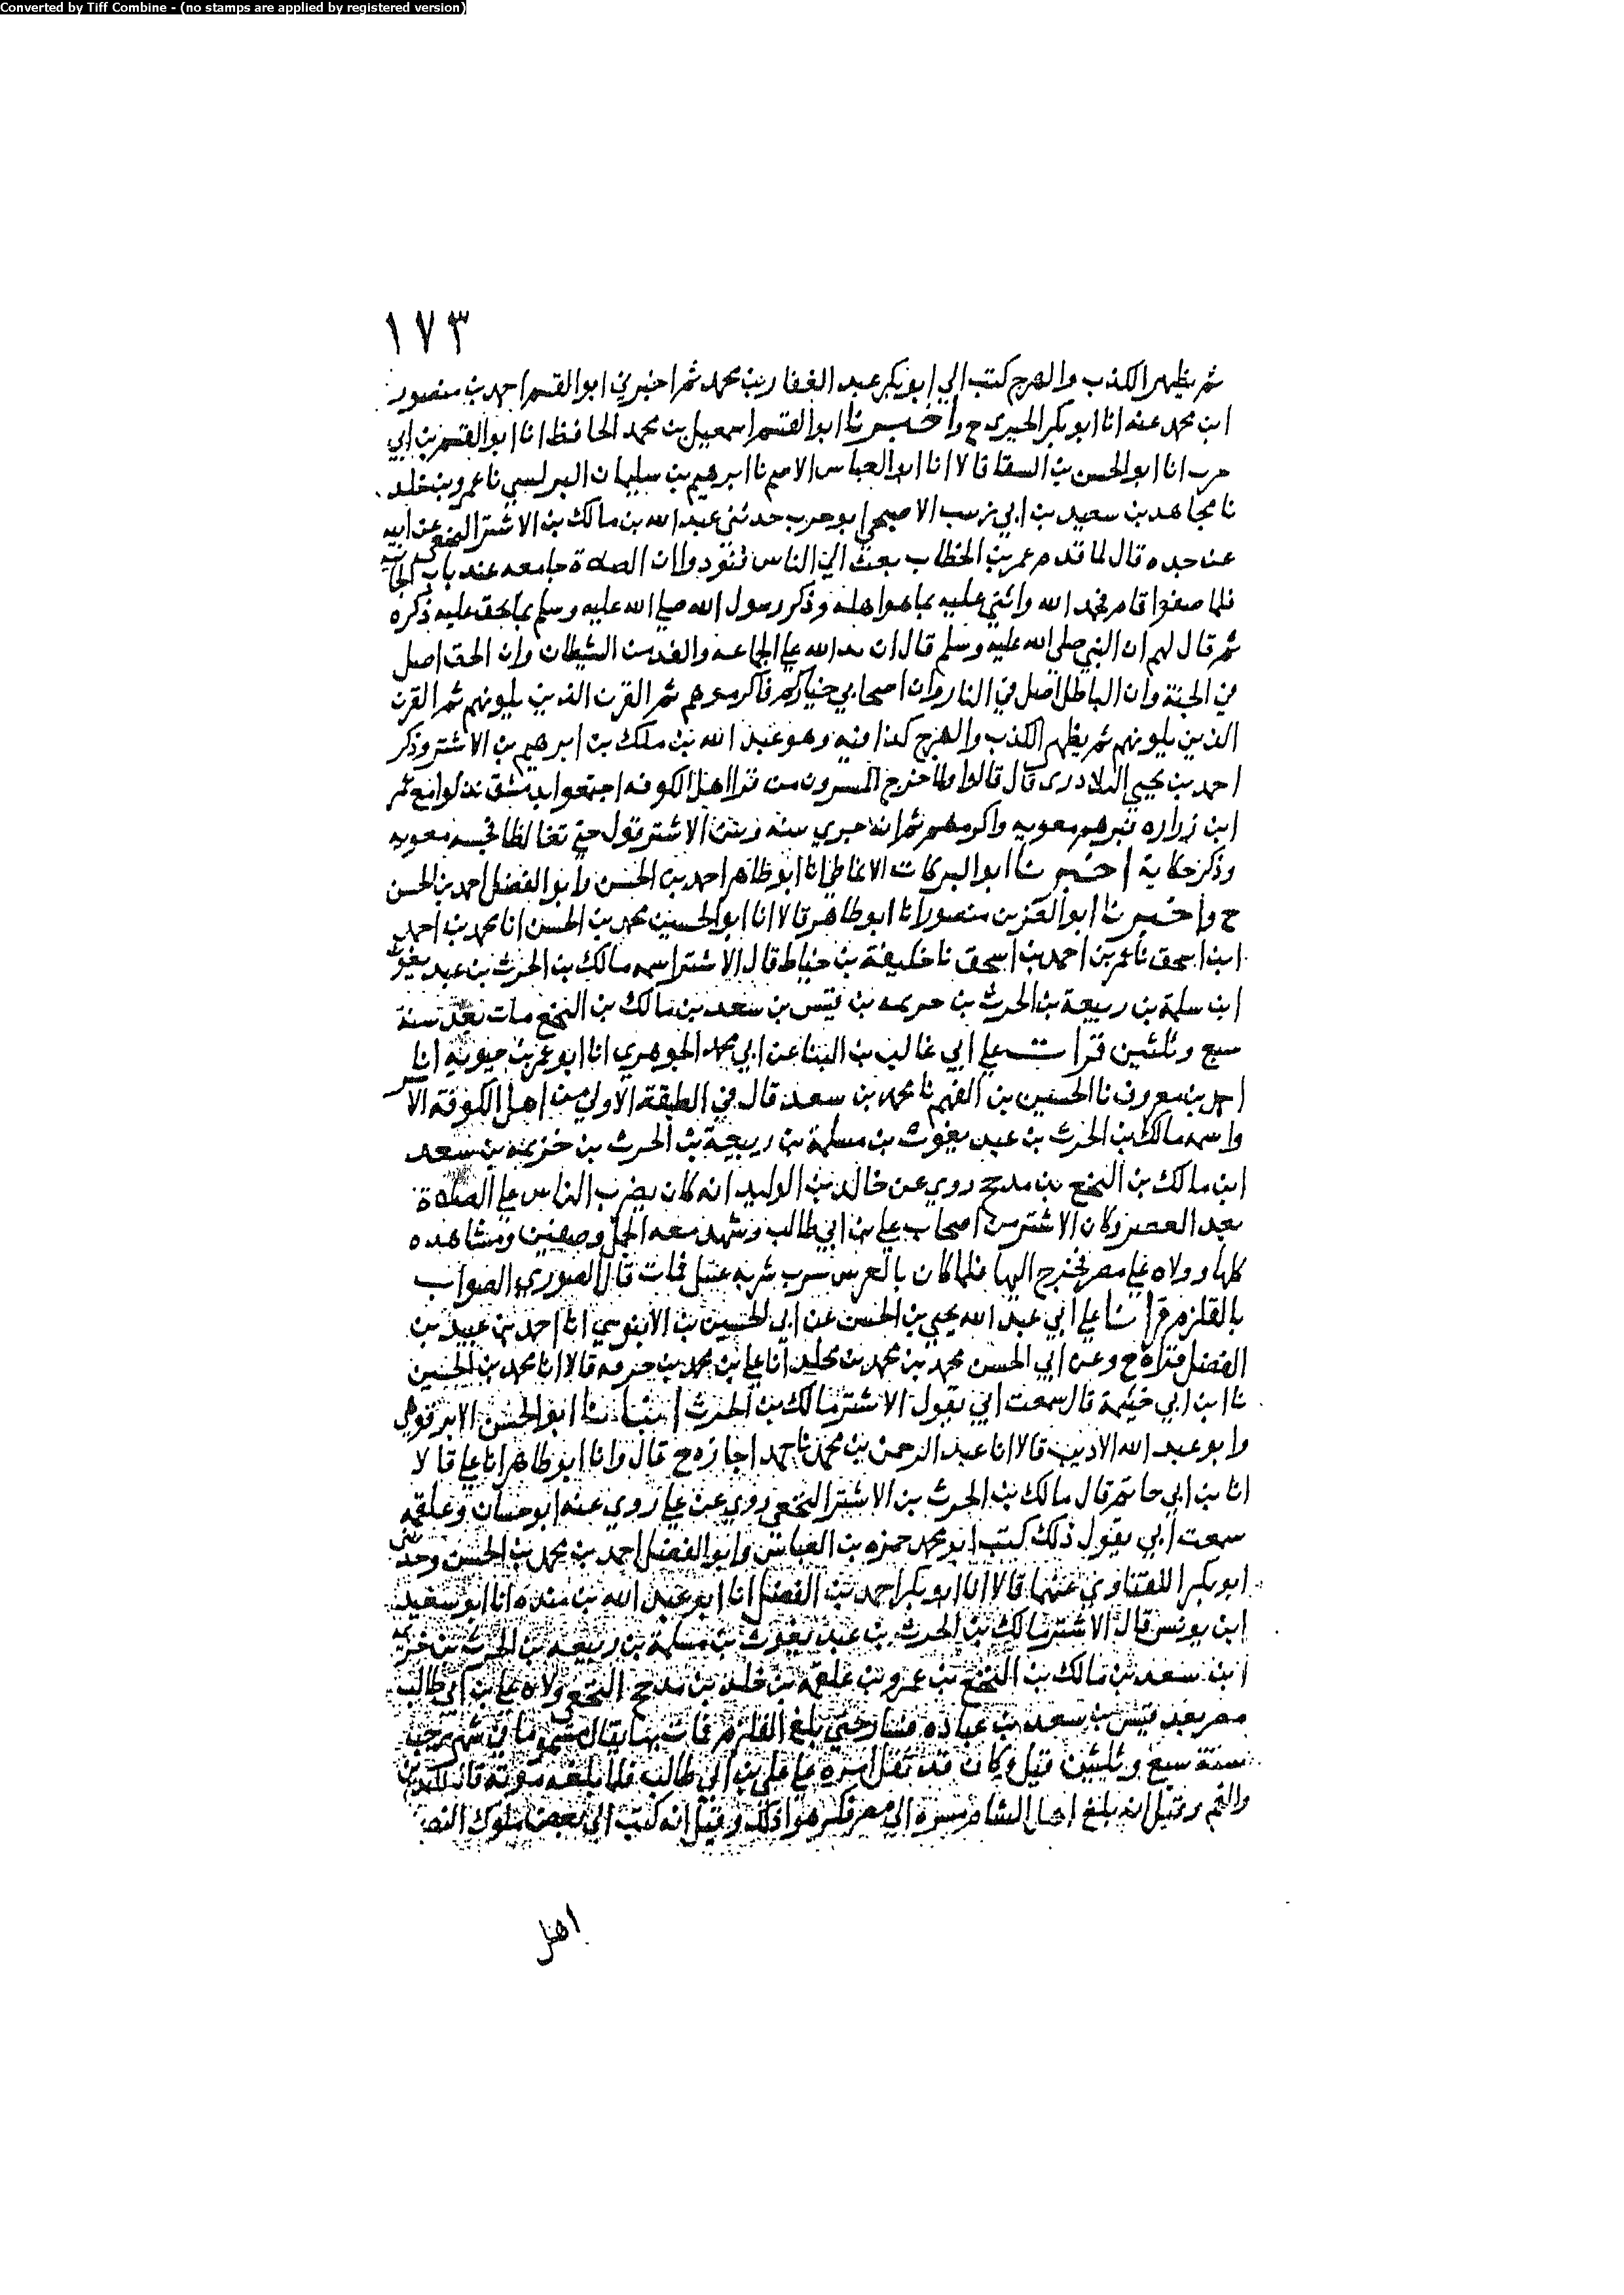 Converted by Tiff Combine - (no stamps are applied by registered version)
١٧٣
ثم يظهر الكذب والهرج كتب الي ابو بكر عبد الغفار بن محمد ثم اخبرني ابو القسم احمد بن منصور
ابن محمد عنه انا ابو بكر الحيري ح واخبرنا ابو القسم اسمعيل بن محمد الحافظ انا ابو القسم بن ابي
حرب انا ابو الحسن بن السقا قالا انا ابو العباس الاصم نا ابرهيم بن سليمان البرلسي نا عمرو بن خلد
نا مجاهد بن سعيد بن ابي زينب الاصبحي ابو حرب حدثني عبد الله بن مالك بن الاشتر النخعي عن ابيه
عن جده قال لما قدم عمر بن الخطاب بعث الي الناس فنودوا ان الصلاة جامعه عند باب الجابيه
فلما صفوا قام فحمد الله واثني عليه بما هو اهله وذكر رسول الله صلي الله عليه وسلم بما يحق عليه ذكره
ثم قال لهم ان النبي صلى الله عليه وسلم قال ان يد الله علي الجماعه والفذ من الشيطان وان الحق اصل
في الجنة وان الباطل اصل في النار وان اصحابي خياركم فاكرموهم ثم القرن الذين يلونهم ثم القرن
الذين يلونهم ثم يظهر الكذب والهرج كذا فيه وهو عبد الله بن ملك بن ابرهيم بن الاشتر وذكر
احمد بن يحيي البلادري قال قالوا ولما خرج المسيرون من قرا اهل الكوفه اجتمعوا بدمشق نزلوا مع عمر
ابن زراره فبرهم معويه واكرمهم ثم انه جري بينه وبين الاشتر قول حتي تغالظا فحبسه معويه
وذكر حكاية اخبرنا ابو البركات الانماطي انا ابو طاهر احمد بن الحسن وابو الفضل احمد بن الحسن
ح واخبرنا ابو العز بن منصور انا ابو طاهر قالا انا ابو الحسين محمد بن الحسن انا محمد بن احمد
ابن اسحق نا عمر بن احمد بن اسحق نا خليفة بن خياط قال الاشتر اسمه مالك بن الحرث بن عبد يغوث
ابن سلمة بن ربيعة بن الحرث بن حريمه بن قيس بن سعد بن مالك بن النخع مات بعد سنة
سبع وثلثين قرات علي ابي غالب بن البنا عن ابي محمد الجوهري انا ابو عمر بن حيويه انا
احمد بن معروف نا الحسين بن الفهم نا محمد بن سعد قال في الطبقة الاولي من اهل الكوفة الاشتر
واسمه مالك بن الحرث بن عبد يغوث بن مسلمة بن ربيعة بن الحرث بن خزيمة بن سعد
ابن مالك بن النخع بن مدحج روي عن خالد بن الوليد انه كان يضرب الناس علي الصلاة
بعد العصر وكان الاشتر من اصحاب علي بن ابي طالب وشهد معه الجمل وصفين ومشاهده
كلها وولاه علي مصر فخرج اليها فلما كان بالعريس شرب شربه عسل فمات قال الصوري والصواب
بالقلزم قرانا علي ابي عبد الله يحيي بن الحسن عن ابي الحسين بن الابنوسي انا احمد بن عبيد بن
الفضل قراة ح وعن ابي الحسن محمد بن محمد بن مخلد انا علي بن محمد بن خزفه قالا انا محمد بن الحسين
نا ابن ابي خيثمة قال سمعت ابي يقول الاشتر مالك بن الحرث انبانا ابو الحسن الابرقوهي
وابو عبد الله الاديب قالا انا عبد الرحمن بن محمد نا حمد اجازه ح قال وانا ابو طاهر انا علي قالا
انا بن ابي حاتم قال مالك بن الحرث بن الاشتر النخعي روي عن علي روي عنه ابو حسان وعلقمه
سمعت ابي يقول ذلك كتب ابو محمد حمزه بن العباس وابو الفضل احمد بن محمد بن الحسن وحدثني
ابو بكر اللفتواني عنهما قالا انا ابو بكر احمد بن الفضل انا ابو عبد الله بن منده انا ابو سعيد
ابن يونس قال الاشتر مالك بن الحرث بن عبد يغوث بن مسلمة بن ربيعه بن الحرث بن خزيمه
ابن سعد بن مالك بن النخع بن عمرو بن علقمه بن خلد بن مدحج النخعي ولاه علي بن ابي طالب
مصر بعد قيس بن سعد بن عباده فسار حتي بلغ القلزم فمات بها يقال مسموما في شهر رجب
سنة سبع وثلثين قيل وكان قد ثقل امره علي علي بن ابي طالب فلما بلغه موته قال لليدين
والفم وقيل انه بلغ اهل الشام مسيره الي مصر فكرهوا ذلك وقيل انه كتب الي بعض ملوك النصـ
اهل